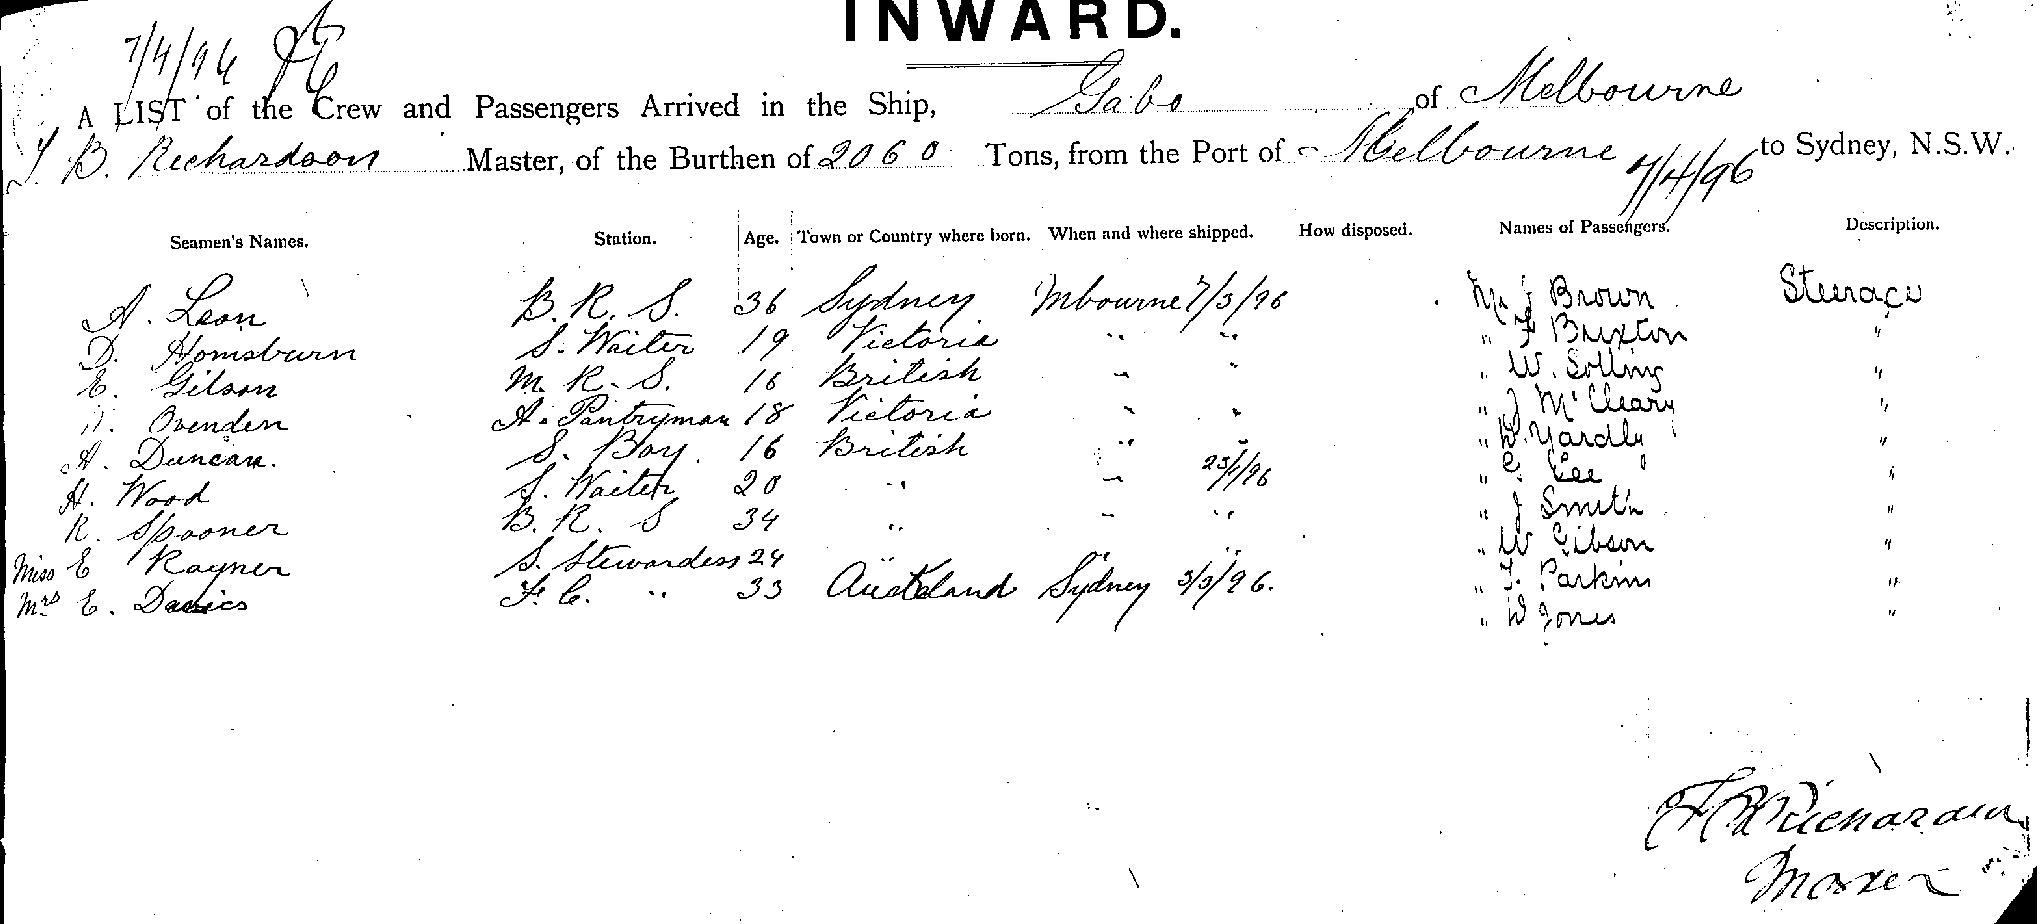 INWARD.
7/4/96
A LIST of the Crew and Passengers Arrived in the Ship, Gabo of Melbourne
F. B. Richardson Master, of the Burthen of 2060 Tons, from the Port of Melbourne 7/4/96 to Sydney, N.S.W.
Seamen's Names. Station. Age. Town or Country where born. When and where shipped. How disposed. Names of Passengers. Description.
A. Leon B. R. S. 36 Sydney Mbourne 7/3/96 Mr J Brown Steerage
D. Homsburn S. Waiter 19 Victoria " " " F Brixton "
E. Gilson M. R. S. 16 British " " " W. Solling "
Ovenden A. Pantryman 18 Victoria " " " J McCleary "
A. Duncan. S. Boy. 16 British " " " Yardly "
H. Wood S. Waiter 20 " " 23/1/96 " C. Lee "
R. Spooner B. R. S 34 " " " " J Smith "
Miss E Rayner S. Stewardess 24 " " " " W Gibson "
Mrs E. Davies F. C. " 33 Auckland Sydney 3/3/96. " T. Parkins "
" W Jones "
F B Richardson
Master